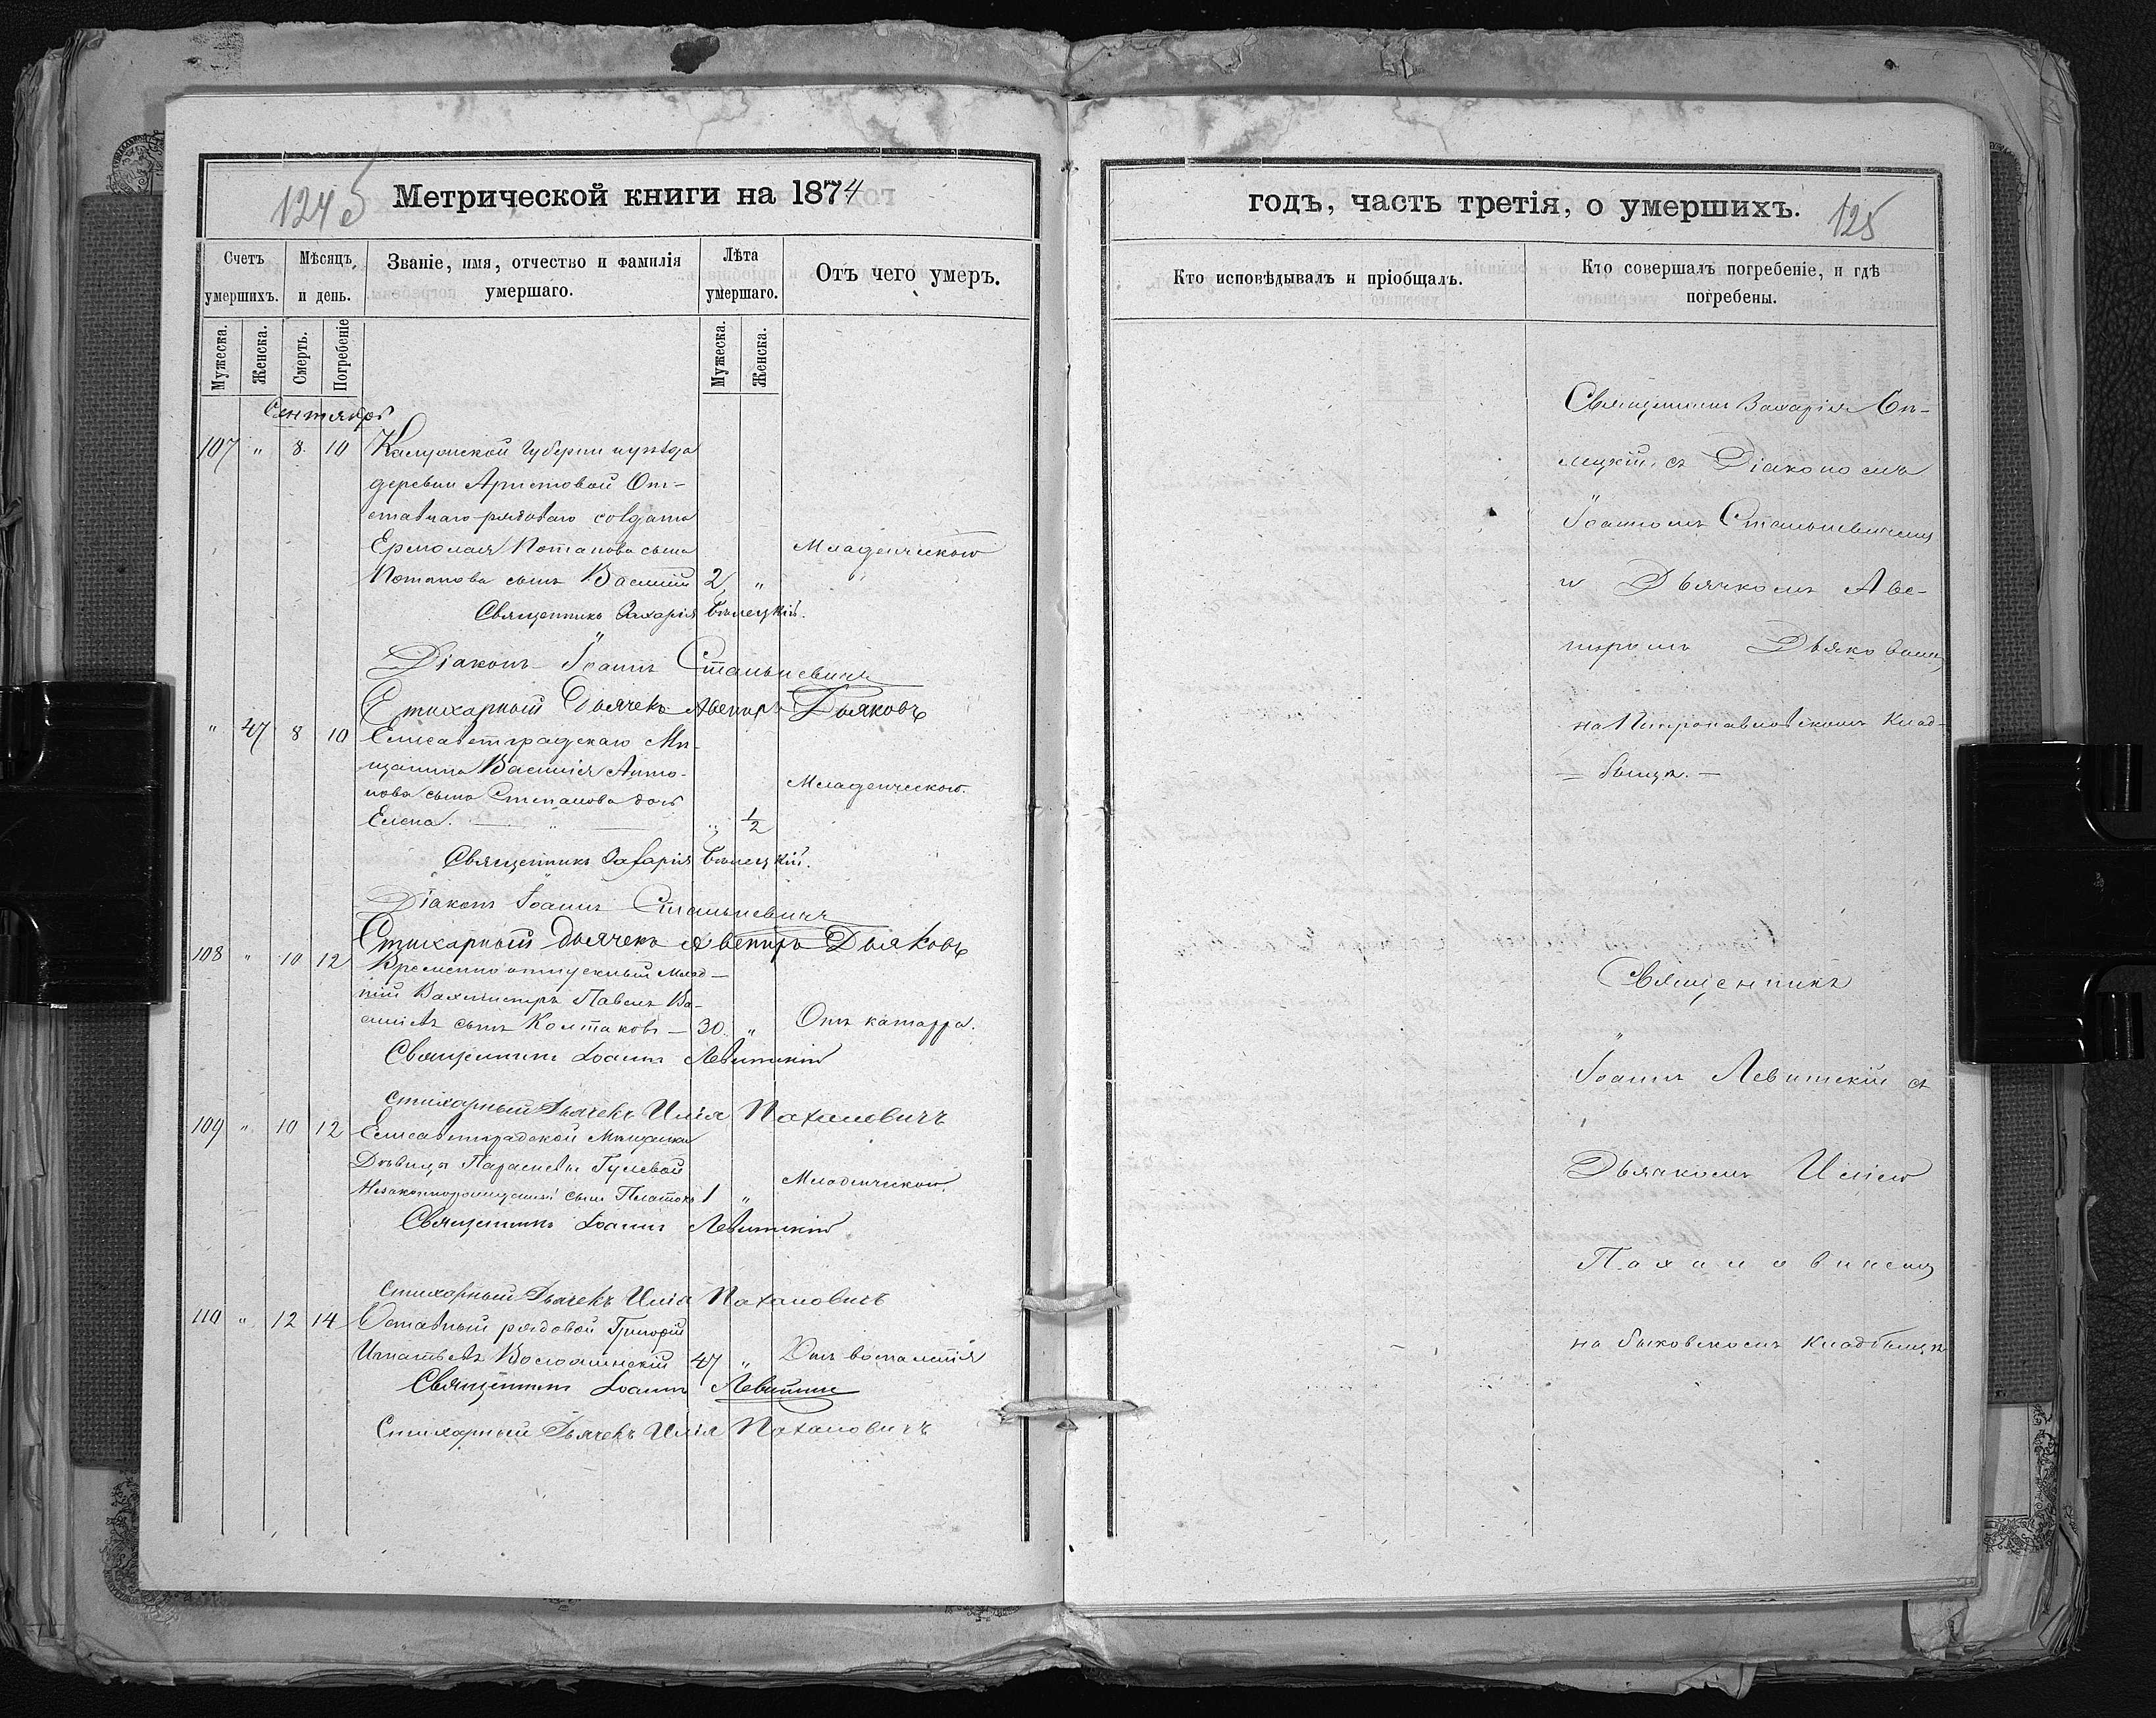 1245 Метрической книги на 1874
Счетъ умершихъ.
Мѣсяцъ и день.
Званіе, имя, отчество и фамилія умершаго.
Лѣта умершаго.
Отъ чего умеръ.
Мужеска.
Женска.
Смерть.
Погребеніе
Мужеска.
Женска.
Сентябрь
107 " 8 10 Калужской Губерніи и уѣзда
деревни Аристовой От-
ставнаго рядоваго солдата
Ермолая Потапова сына Младенческою
Потапова сынъ Василій 2 "
Священникъ Захарія Бѣлецкій.
Діаконъ Іоаннъ Стальневичъ
Стихарный Дьячекъ Авениръ Дьяковъ
" 47 8 10 Елисаветградскаго Мѣ-
щанина Василія Анто-
нова сына Степанова дочь Младенческою.
Елена. " 1/2
Священникъ Захарія Бѣлецкій.
Діаконъ Іоаннъ Стальневичъ
Стихарный дьячекъ Авениръ Дьяковъ
108 " 10 12 Временно отпускный Млад-
шій Вахмистръ Павелъ Ва-
силіевъ сынъ Колтаковъ 30 " Отъ катарра.
Священникъ Іоаннъ Левитскій
Стихарный Дьячекъ Илія Пахаловичъ
109 " 10 12 Елисаветградской Мѣщанки
Дѣвицы Параскевы Гулевой
Незаконнорожденный сынъ Платонъ 1 " Младенческою.
Священникъ Іоаннъ Левитскій
Стихарный Дьячекъ Илія Пахаловичъ
110 " 12 14 Отставный рядовой Григорій
Игнатьевъ 47 " Отъ воспаленія
Священникъ Іоаннъ Левитскій
Стихарный Дьячекъ Илія Пахаловичъ
годъ, часть третія, о умершихъ. 125
Кто исповѣдывалъ и пріобщалъ.
Кто совершалъ погребеніе, и гдѣ погребены.
Священникъ Захарія Бѣ-
лецкій съ Діакономъ
Іоанномъ Стальневичемъ
и Дьячкомъ Аве-
ниромъ Дьяковымъ
на Петропавловскомъ Клад-
бищѣ.
Священникъ
Іоаннъ Левитскій съ
Дьячкомъ Иліею
Пахаловичемъ
на Быковскомъ Кладбищѣ